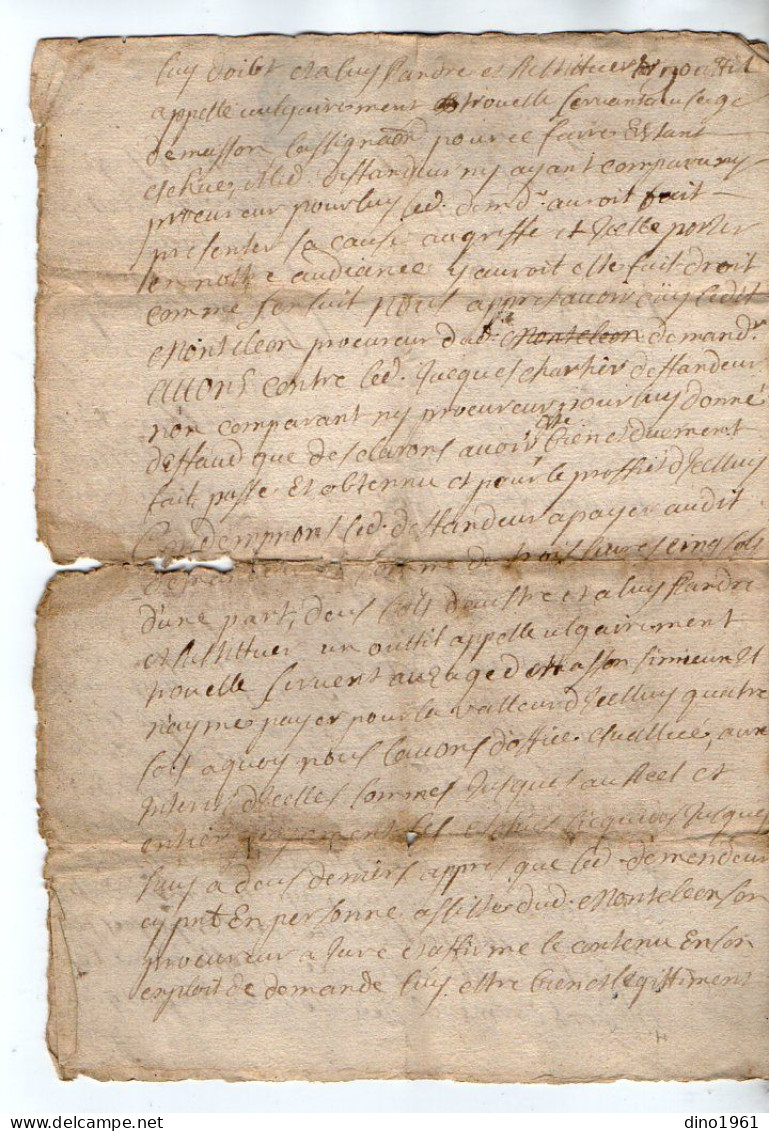 luy doibt et a luy Randre et Restituer un outtil
appelle vulgairement trouelle servant a lusage
de masson lassignaon pour ce faire Estant
escheue, et led. deffandeur ny ayant comparu ny
procureur pour luy led. demdr. auroit fait
presenter sa cause au greffe et Icelle porter
en nottre audiance y auroit esté fait droit
comme sensuit nous appres avoir ouy ledit
Monteleon procureur dud. Monteleon demandr.
Allons contre led. Jacques charhier deffandeur
non comparant ny procureur pour luy donné
deffaud que desclarons avoir esté bien et duement
fait, passé Et obtenu et pour le proffit dIcelluy
Condempnons led. deffandeur a payer audit
demandeur la somme de trois livres cinq sols
d'une part, deus sols d'aultre et a luy Randre
et Restituer un outtil appelle vulgairement
trouelle servent a uzage de Masson simieux Et
n'ayme payer pour la valleur dIcelluy quatre
sols a quoy nous lavons d'office esvallué, aux
Interets dIcelles sommes Jusques au Reel et
entier payement Et
Juys a deus deniers appres que led. demendeur
cy pnt En personne assitté dud. Monteleon son
procureur a Juré et affirmé le contenu En son
exploit de demande luy estre bien et legittiment
dino1961